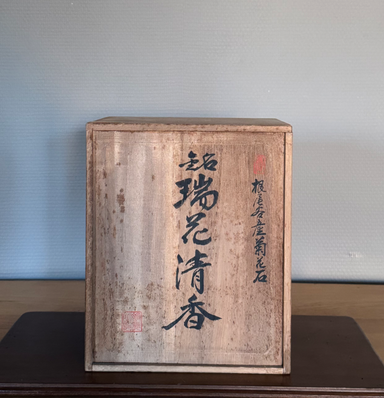 根尾谷産菊花石
銘
瑞花清香